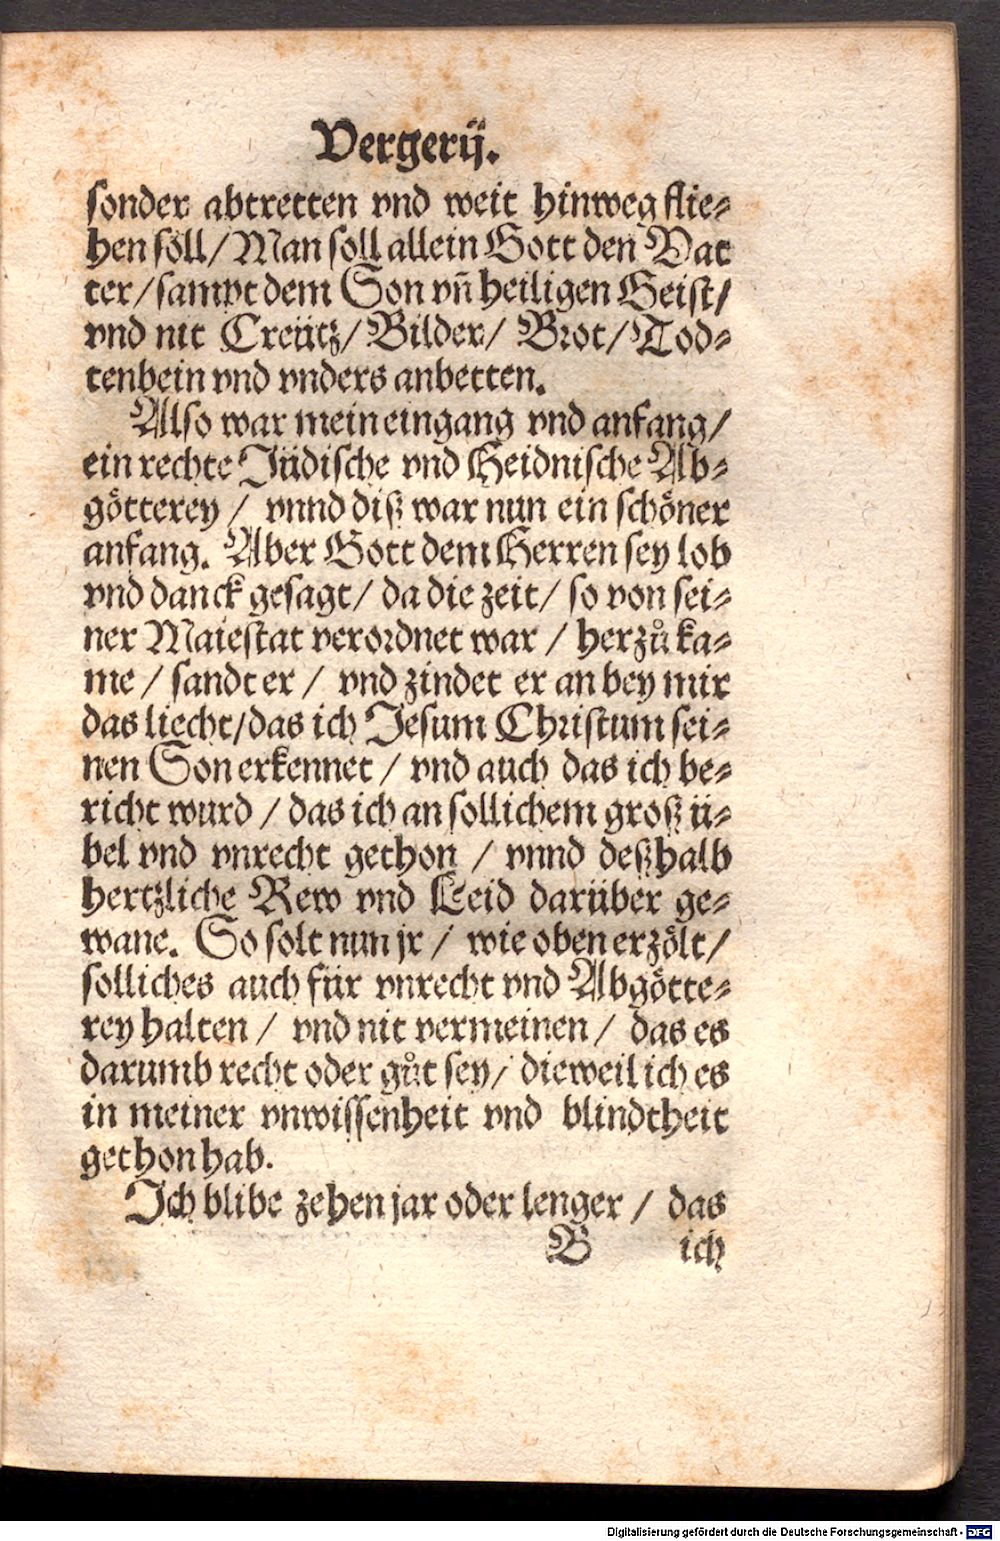 Vergerij.
sonder abtretten vnd weit hinweg flie⸗
hen söll/ Man soll allein Gott den Vat
ter/ sampt dem Son vñ heiligen Geist/
vnd nit Creütz/ Bilder/ Brot/ Tod⸗
tenbein vnd vnders anbetten.
Also war mein eingang vnd anfang/
ein rechte Jüdische vnd Heidnische Ab⸗
götterey / vnnd diß war nun ein schöner
anfang. Aber Gott dem Herren sey lob
vnd danck gesagt/ da die zeit/ so von sei⸗
ner Maiestat verordnet war / herzů ka⸗
me / sandt er / vnd zindet er an bey mir
das liecht/ das ich Jesum Christum sei⸗
nen Son erkennet / vnd auch das ich be⸗
richt wurd / das ich an sollichem groß ü⸗
bel vnd vnrecht gethon / vnnd deßhalb
hertzliche Rew vnd Leid darüber ge⸗
wane. So solt nun jr / wie oben erzölt/
solliches auch für vnrecht vnd Abgötte⸗
rey halten / vnd nit vermeinen / das es
darumb recht oder gůt sey/ dieweil ich es
in meiner vnwissenheit vnd blindtheit
gethon hab.
Ich blibe zehen jar oder lenger / das
B ich
Digitalisierung gefördert durch die Deutsche Forschungsgemeinschaft - DFG